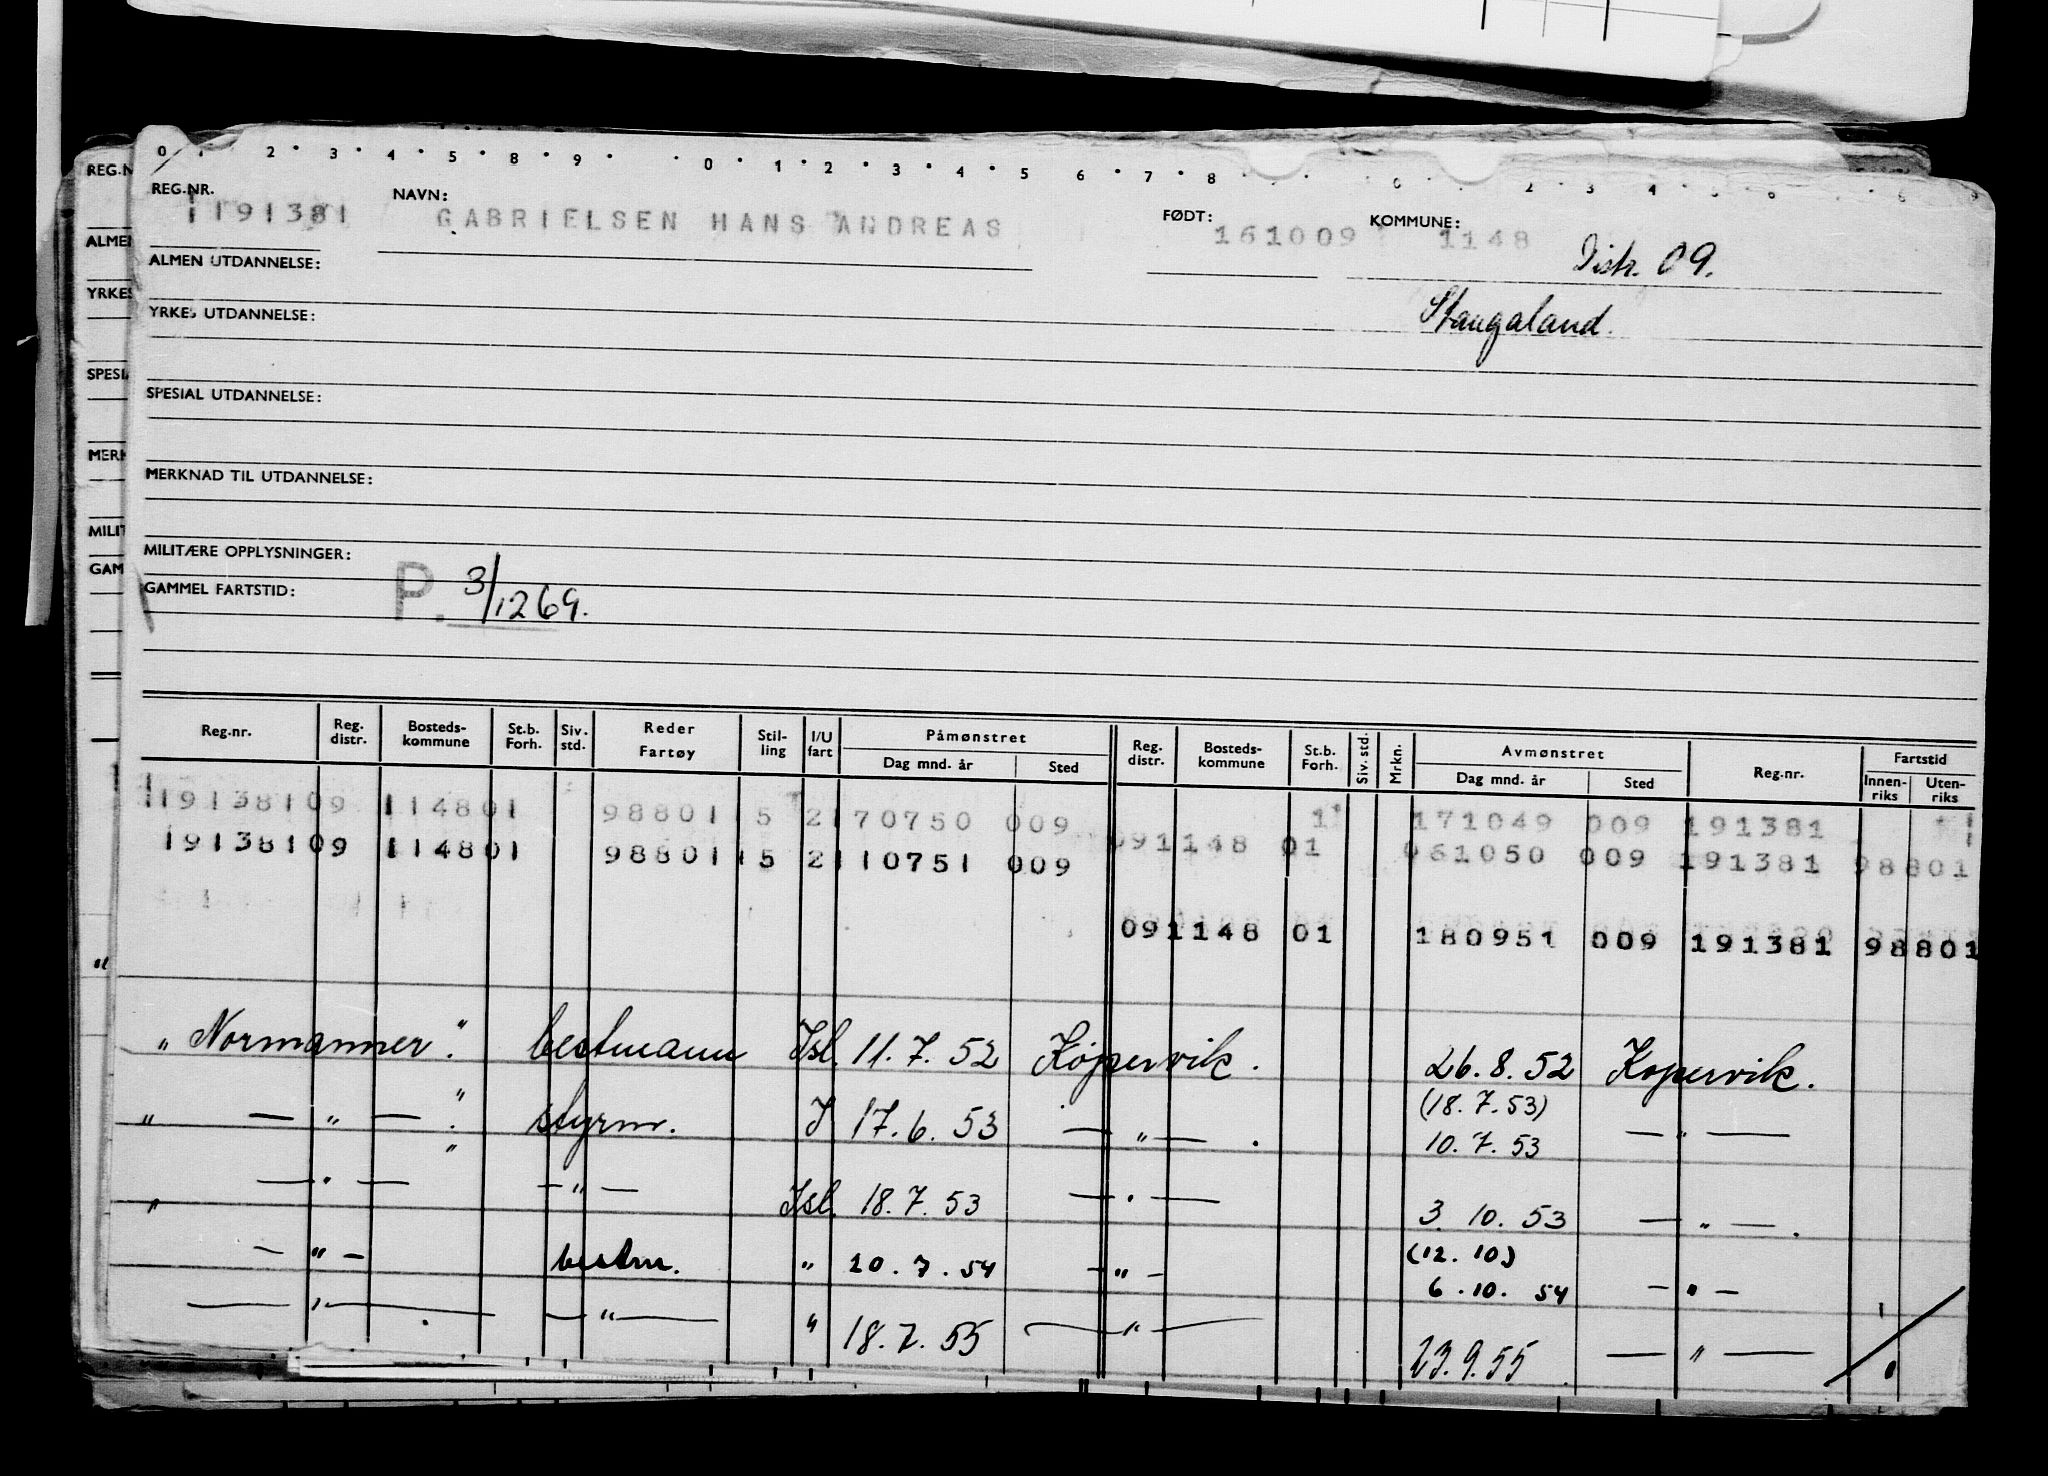 0 · 2 · 3 · 4 · 5 · 8 · 9 · · 0 · 1 · 2 · 3 · 4 · 5 6 · 7 · 8 · · 0 · 2 · 3 4 5 6 8 9
REG.NR. NAVN: FØDT: KOMMUNE:
191381 GABRIELSEN HANS ANDREAS 161009 1148
Distr. 09.
ALMEN UTDANNELSE:
YRKES UTDANNELSE: Stangaland.
SPESIAL UTDANNELSE:
MERKNAD TIL UTDANNELSE:
MILITÆRE OPPLYSNINGER:
GAMMEL FARTSTID: P. 3/12 69.
REG.N
ALMEN
YRKES
SPESIA
MERK
MILIT
GAM
Reg.nr. Reg. distr. Bosteds-kommune St.b. Forh. Siv. std. Reder Fartøy Stil-ling I/U fart Påmønstret Reg. distr. Bosteds-kommune St.b. Forh. Siv. std. Mrkn. Avmønstret Reg.nr. Fartstid
Dag mnd. år Sted Dag mnd. år Sted Innen-riks Uten-riks
19138109 114801 98801 15 2 170750 009 1 171049 009 191381
19138109 114801 98801 15 2 110751 009 091148 01 061050 009 191381 98801
091148 01 180951 009 191381 98801
"Normanner". bestmann Isl. 11.7.52 Kopervik. 26.8.52 Kopervik.
" — " — ". styrm. I 17.6.53 — " — . (18.7.53) 10.7.53 — " —
— " — " — " — Isl. 18.7.53 — " — 3.10.53 — " — .
" — " — bestm. " 20.7.54 — " — (12.10) 6.10.54 — " —
— " — . — " — " 18.7.55 — " — 23.9.55 — " —